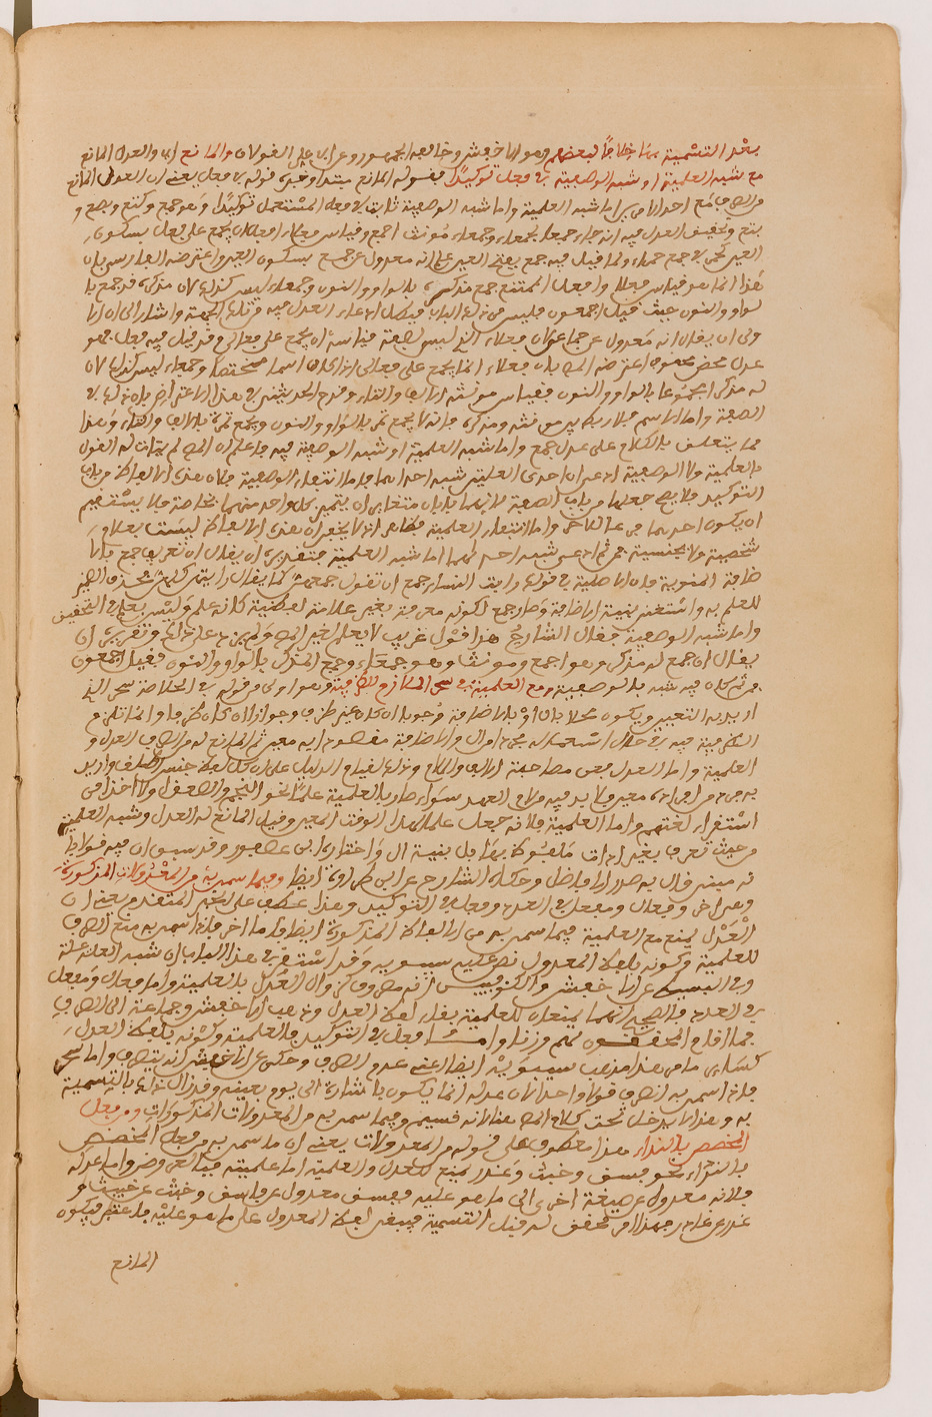 بعد التسمية بها خلافا لبعضهم وهو الاخفش وخالفه الجمهور وعن ابي علي القولان والمانع اي والعدل المانع
مع شبه العلمية او شبه الوصفية في فعل توكيدا فقوله المانع مبتدا وخبره قوله في فعل يعني ان العدل المانع
من الصرف مع احد الامرين اما شبه العلمية واما شبه الوصفية ثابت في فعل المستعمل توكيدا وهو جمع وكتع وبصع و
بتع وتحقيق العدل فيه انه جاء جمعا لجمعاء وجمعاء مؤنث اجمع وقياس فعلاء افعل ان يجمع على فعل بسكون
العين كحمر في جمع حمراء فلما قيل فيه جمع بفتح العين علم انه معدول عن جمع بسكون العين واعترضه الفارسي بان
هذا انما هو قياس فعلاء وافعل الممتنع جمع مذكره بالواو والنون وجمعاء ليس كذلك لان مذكره قد جمع با
لواو والنون حيث قيل اجمعون فليس من ذلك الباب فبطل ادعاء العدل فيه من تلك الجهة واشار الى ان الا
ولى ان يقال انه معدول عن جماعى لان فعلاء الذي ليس بصفة قياسه ان يجمع على فعالى وقد قيل فيه فعل فهو
عدل محض اعترضه المص بان فعلاء انما يجمع على فعالى اذا كان اسما محضا وجمعاء ليس كذلك لان
له مذكرا مجموعا بالواو والنون فقياس مؤنثه الالف والتاء وقدح في هذا الاعتراض بان ذلك في
الصفة واما الاسم فلا ربط بين مؤنثه ومذكره فانه لا يجمع بالواو والنون ويجمع بالالف والتاء وهذا
مما يتعلق بالكلام على عدل جمع واما شبه العلمية او شبه الوصفية فيه فاعلم ان المص لم يتأت له القول
بالعلمية ولا الوصفية اذ عبر ان احدى العلتين شبه احداهما فاما انتفاء الوصفية فلان هذه الالفاظ من باب
التوكيد فلا يصح جعلها من باب الصفة لانهما بابان متغايران يتميز كل واحد منهما بخاصة فلا يستقيم
ان يكون احدهما من الاخر واما انتفاء العلمية فظاهر اذ لا يخفى ان هذه الالفاظ ليست باعلام
شخصية ولا جنسية فمن ثم ادعى شبه احداهما اما شبه العلمية فتقريره ان يقال ان تعريف جمع بالا
ضافة المنوية فان الاصل في قولك رايت النساء جمع ان تقول جمعهن كما يقال رايتهن كلهن فحذف الضمير
للعلم به واستغني بنية الاضافة وصار جمع لكونه معرفة بغير علامة لفظية كانه علم وليس بعلم في التحقيق
واما شبه الوصفية فقال الشارح هذا قول غريب لا يعلم لغير المص ولم يزد على ذلك وتقريره ان
يقال ان جمع له مذكر وهو اجمع ومؤنث وهو جمعاء وجمع المذكر بالواو والنون فقيل اجمعون
فمن ثم كان فيه شبه بالوصفية ومع العلمية في سحر الملازم للظرفية وهو اولى من قوله في الخلاصة سحر الذي
اريد به التعيين ويكون محلا بال او بالاضافة وجوبا ان كان غير ظرف وجوازا ان كان ظرفا وانما تلزم
الظرفية فيه في حال استعماله مجردا من ال والاضافة مقصودا به معين ثم المانع له من الصرف العدل و
العلمية واما العدل فعن مصاحبة الالف واللام وذلك لقيام الدليل على ان كل لفظ جنس اطلق واريد
به فرد من افراده معين فلا بد فيه من لام العهد سواء صار بالعلمية علما نحو النجم والصعق اولا اخذا من
استقراء لغتهم واما العلمية فلانه جعل علما لهذا الوقت المعين وقيل المانع له العدل وشبه العلمية
من حيث تعرف بغير اداة ملفوظ بها بل بنية ال واختاره ابن عصفور وقد سبق ان فيه قولا با
نه مبني قال به صدر الافاضل وحكاه الشارح عن ابن الطراوة ايضا وفيما سمي به من المعدولات المذكورة
وهي اخر وفعال ومفعل في العدد وفعل في التوكيد وهذا عطف على الجر المتقدم يعني ان
العدل يمنع مع العلمية فيما سمي به من الالفاظ المذكورة ايضا فاما اخر فاذا سمي به منع الصرف
للعلمية وكونه بلفظ المعدول نص عليه سيبويه وقد استقر في هذا الباب ان شبه العلة علة
وفي البسيط عن الاخفش والكوفيين انه مصروف لزوال العدل بالعلمية واما فعال ومفعل
في العدد فالصحيح انهما يمتنعان للعلمية بقاء لفظ العدل وذهب الاخفش وجماعة الى الصرف
فما افاد المحققون واما فعل في التوكيد فللعلمية وكونه بلفظ العدل
كسابر ما مر هذا مذهب سيبويه ايضا اعني عدم الصرف وحكي عن الاخفش انه ينصرف واما سحر
فاذا سمي به انصرف قولا واحدا لان عدله انما يكون باشارة الى يوم بعينه وقد زال ذلك بالتسمية
به وهذا لا يدخل تحت كلام المص هنا لانه قسيم وفيما سمي به من المعدولات المذكورات ومن فعل
المختص بالنداء هذا معطوف على قوله من المعدولات يعني ان ما سمي به من فعل المختص
بالنداء نحو فسق وخبث وغدر يمنع للعدل والعلمية اما علميته فبالعروض واما عدله
فلانه معدول عن صيغة اخرى الى ما هو عليه ففسق معدول عن فاسق وخبث عن خبيث و
غدر عن غادر فهذا امر محقق له قبل التسمية فيبقى لفظ المعدول على ما هو عليه فاعتبر فيكون
المانع